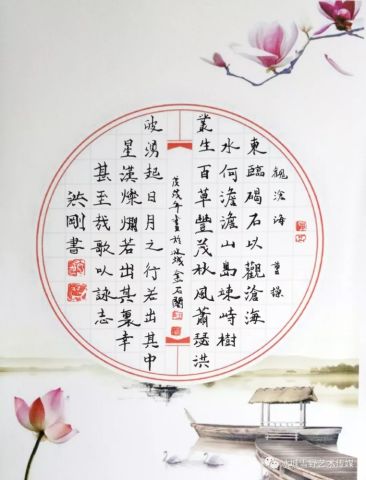 觀滄海 曹操
東臨碣石以觀滄海
水何澹澹山島竦峙樹
叢生百草豐茂秋風蕭瑟洪
戊戌年書於冰城金石閣
波湧起日月之行若出其中
星漢燦爛若出其裏幸
甚至哉歌以詠志
洪剛書
冰城雪野艺术传媒